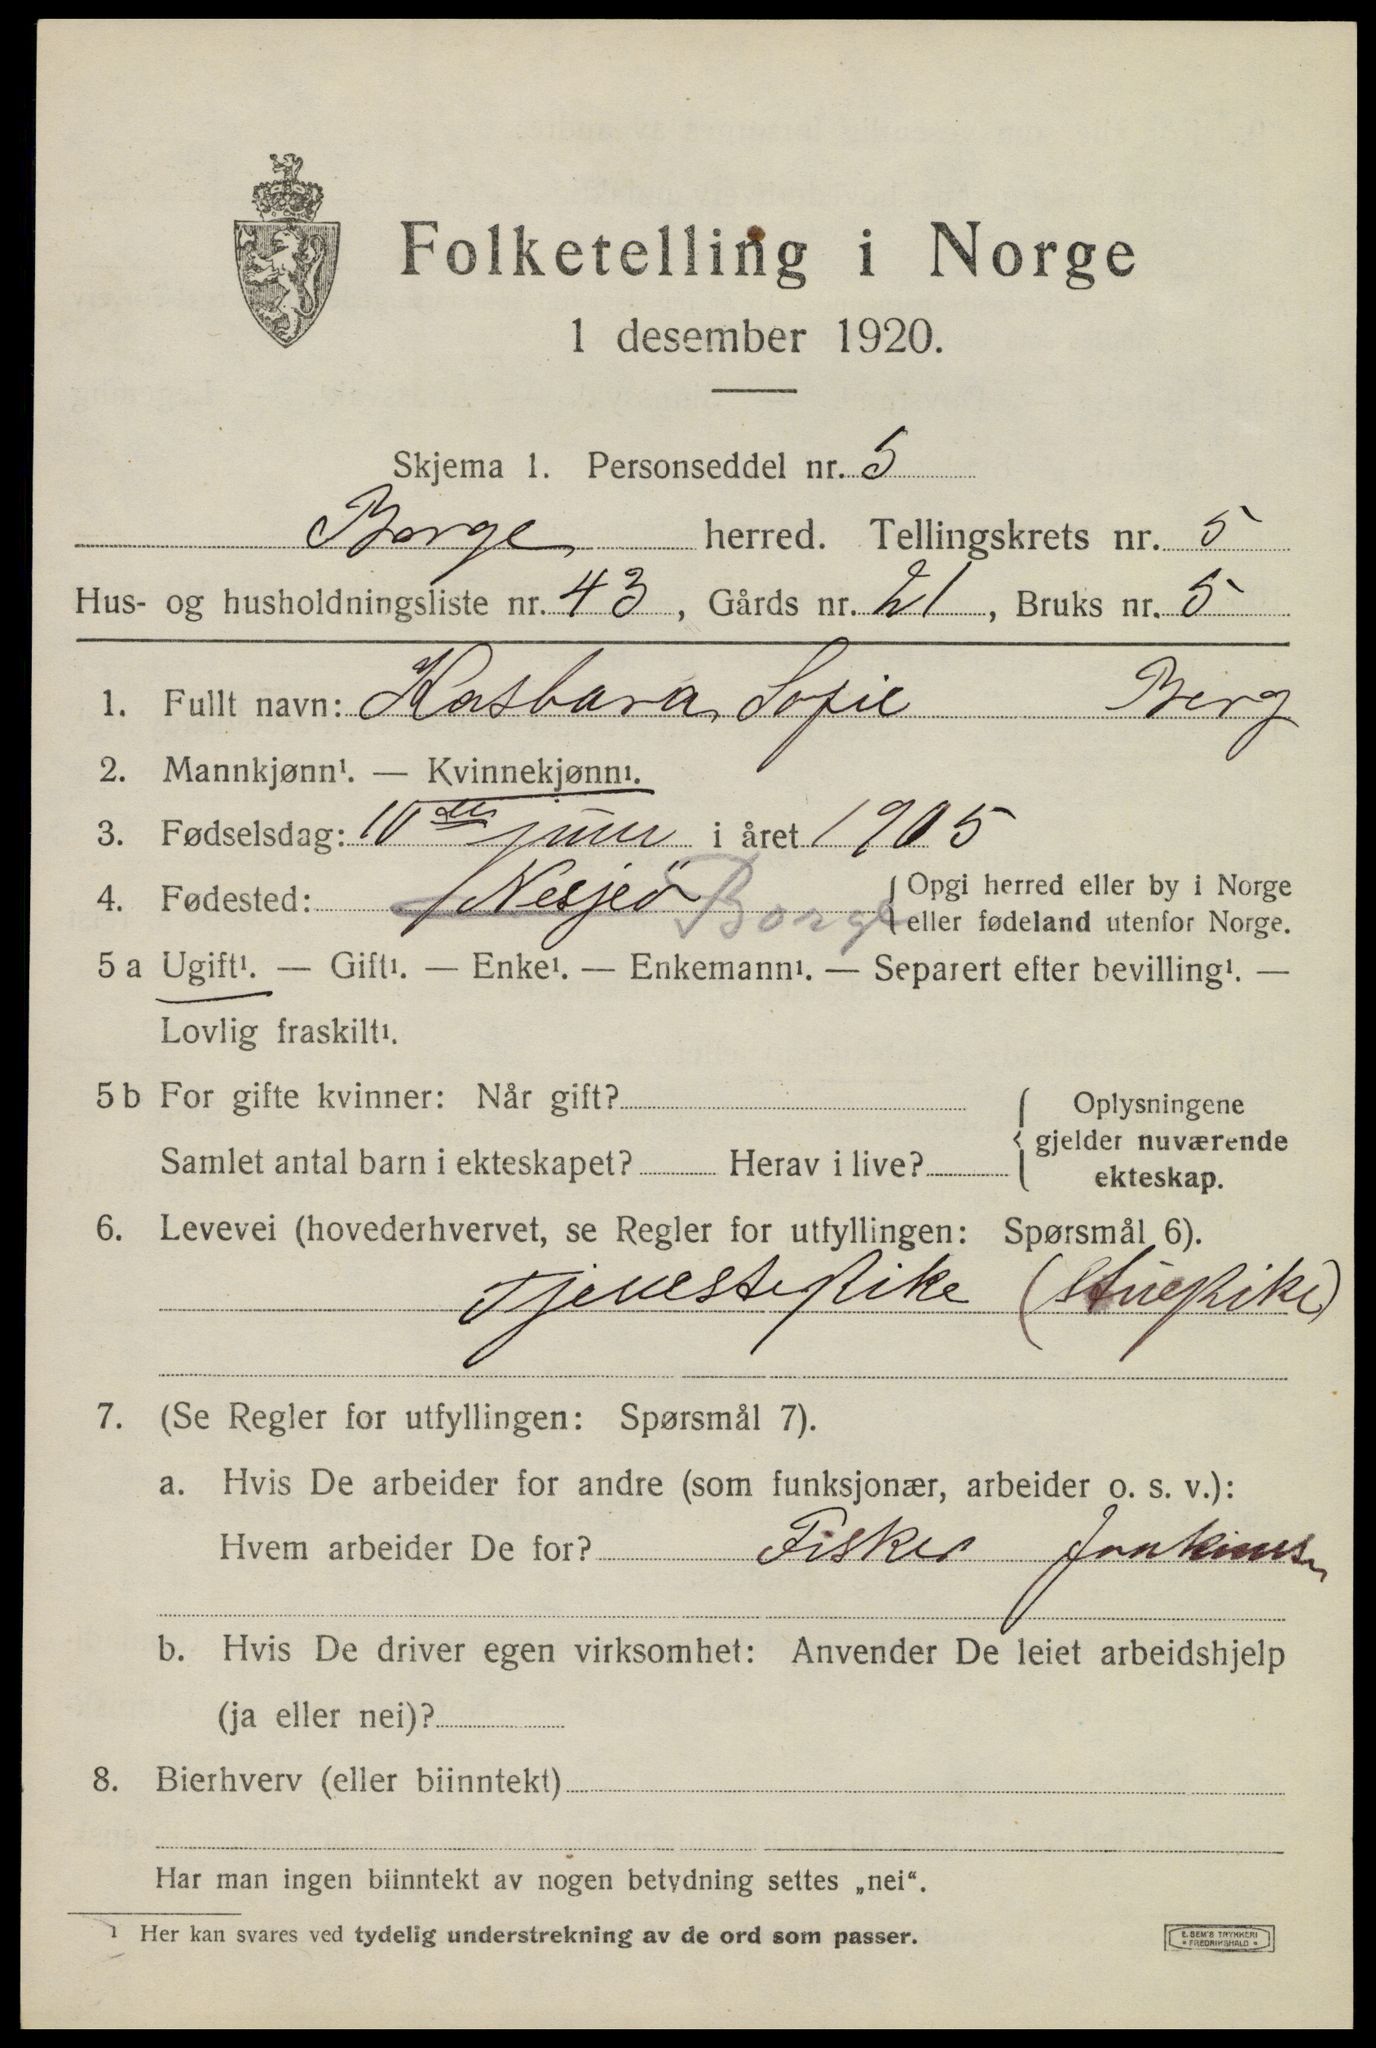 Folketelling i Norge
1 desember 1920.
Skjema 1. Personseddel nr. 5
Borge herred. Tellingskrets nr. 5
Hus- og husholdningsliste nr. 43, Gårds nr. 21, Bruks nr. 5
1. Fullt navn: Kasbara Sofie Berg
2. Mannkjønn¹. — Kvinnekjønn¹.
3. Fødselsdag: 10de juni i året 1905
4. Fødested: Nesjeö Borge { Opgi herred eller by i Norge
eller fødeland utenfor Norge.
5 a Ugift¹. — Gift¹. — Enke¹. — Enkemann¹. — Separert efter bevilling¹. —
Lovlig fraskilt¹.
5 b For gifte kvinner: Når gift? { Oplysningene
gjelder nuværende
Samlet antal barn i ekteskapet? Herav i live? ekteskap.
6. Levevei (hovederhvervet, se Regler for utfyllingen: Spørsmål 6).
Tjenestepike (Stuepike)
7. (Se Regler for utfyllingen: Spørsmål 7).
a. Hvis De arbeider for andre (som funksjonær, arbeider o. s. v.):
Hvem arbeider De for? Fisker Joakimsen
b. Hvis De driver egen virksomhet: Anvender De leiet arbeidshjelp
(ja eller nei)?
8. Bierhverv (eller biinntekt)
Har man ingen biinntekt av nogen betydning settes „nei“.
¹ Her kan svares ved tydelig understrekning av de ord som passer.
E. SEM'S TRYKKERI
• FREDRIKSHALD •